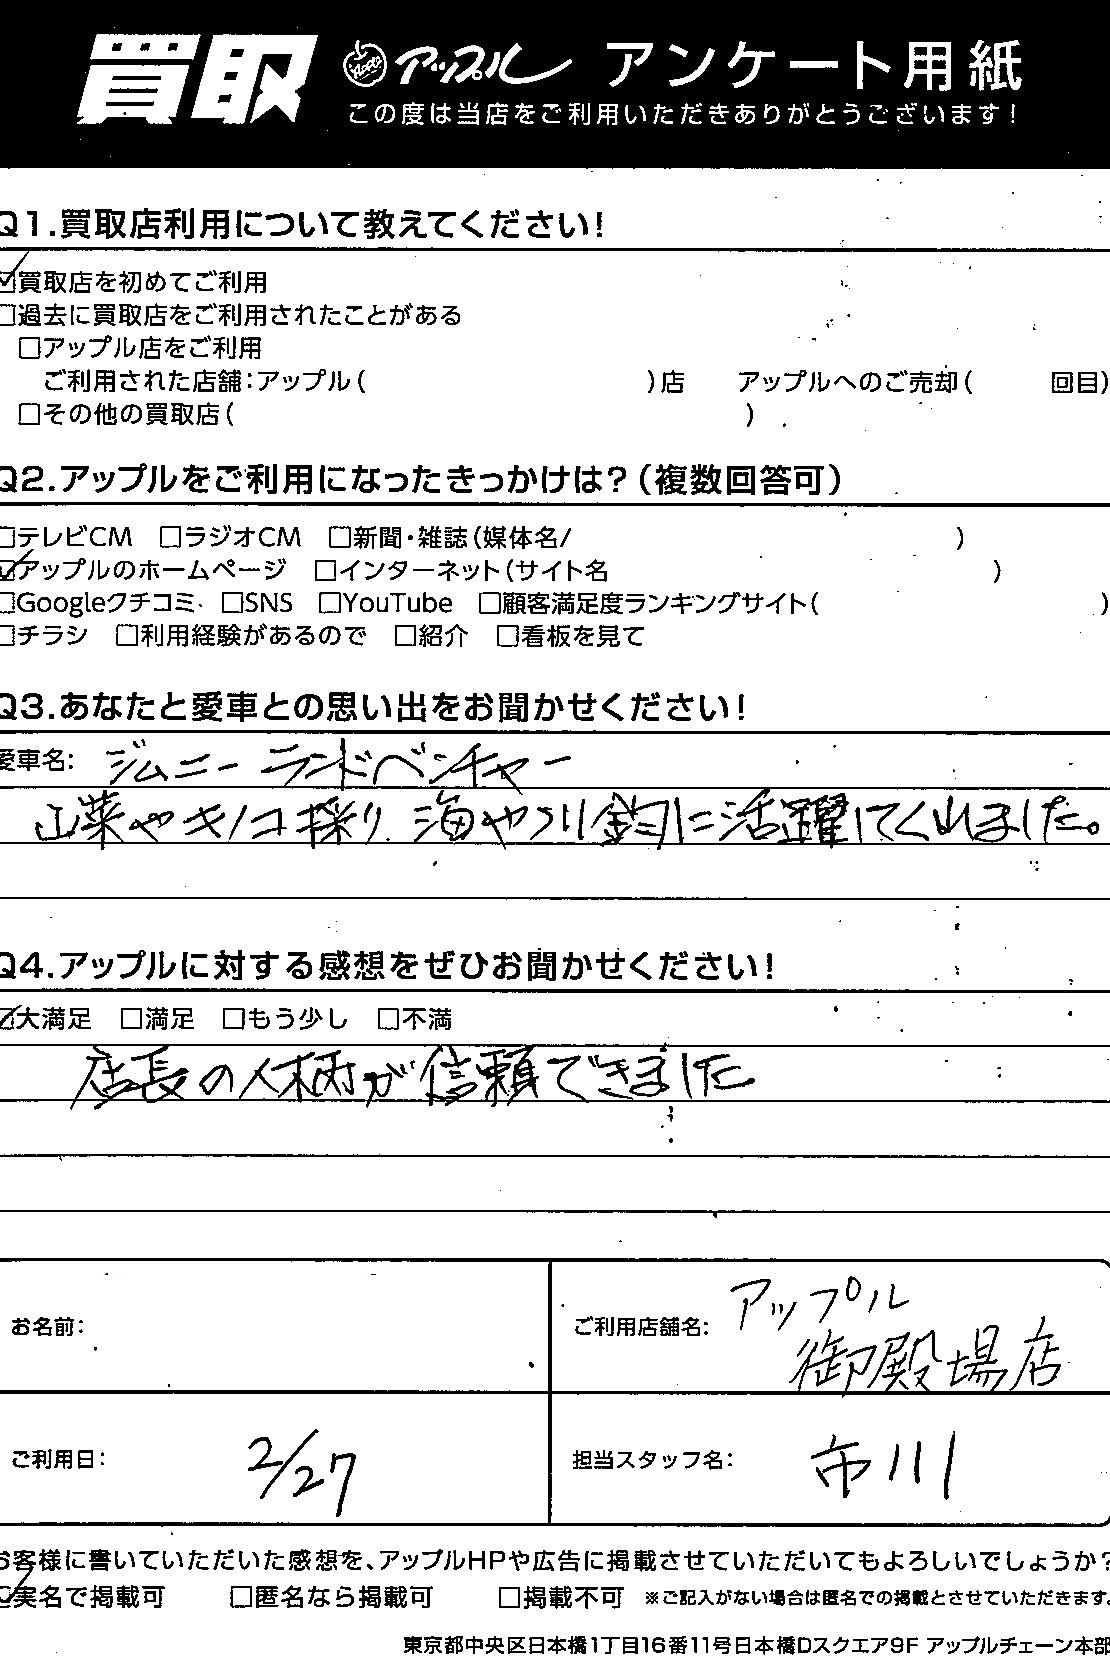 買取 アップル アンケート用紙
この度は当店をご利用いただきありがとうございます!
Q1.買取店利用について教えてください!
☑買取店を初めてご利用
□過去に買取店をご利用されたことがある
□アップル店をご利用
ご利用された店舗:アップル( )店 アップルへのご売却( 回目)
□その他の買取店( )
Q2.アップルをご利用になったきっかけは?(複数回答可)
□テレビCM □ラジオCM □新聞・雑誌(媒体名/ )
☑アップルのホームページ □インターネット(サイト名 )
□Googleクチコミ □SNS □YouTube □顧客満足度ランキングサイト( )
□チラシ □利用経験があるので □紹介 □看板を見て
Q3.あなたと愛車との思い出をお聞かせください!
愛車名: ジムニー ランドベンチャー
山菜やキノコ採り、海や川釣に活躍してくれました。
Q4.アップルに対する感想をぜひお聞かせください!
☑大満足 □満足 □もう少し □不満
店長の人柄が信頼できました
お名前: ご利用店舗名: アップル
御殿場店
ご利用日: 2/27 担当スタッフ名: 市川
お客様に書いていただいた感想を、アップルHPや広告に掲載させていただいてもよろしいでしょうか?
☑実名で掲載可 □匿名なら掲載可 □掲載不可 ※ご記入がない場合は匿名での掲載とさせていただきます。
東京都中央区日本橋1丁目16番11号日本橋Dスクエア9F アップルチェーン本部